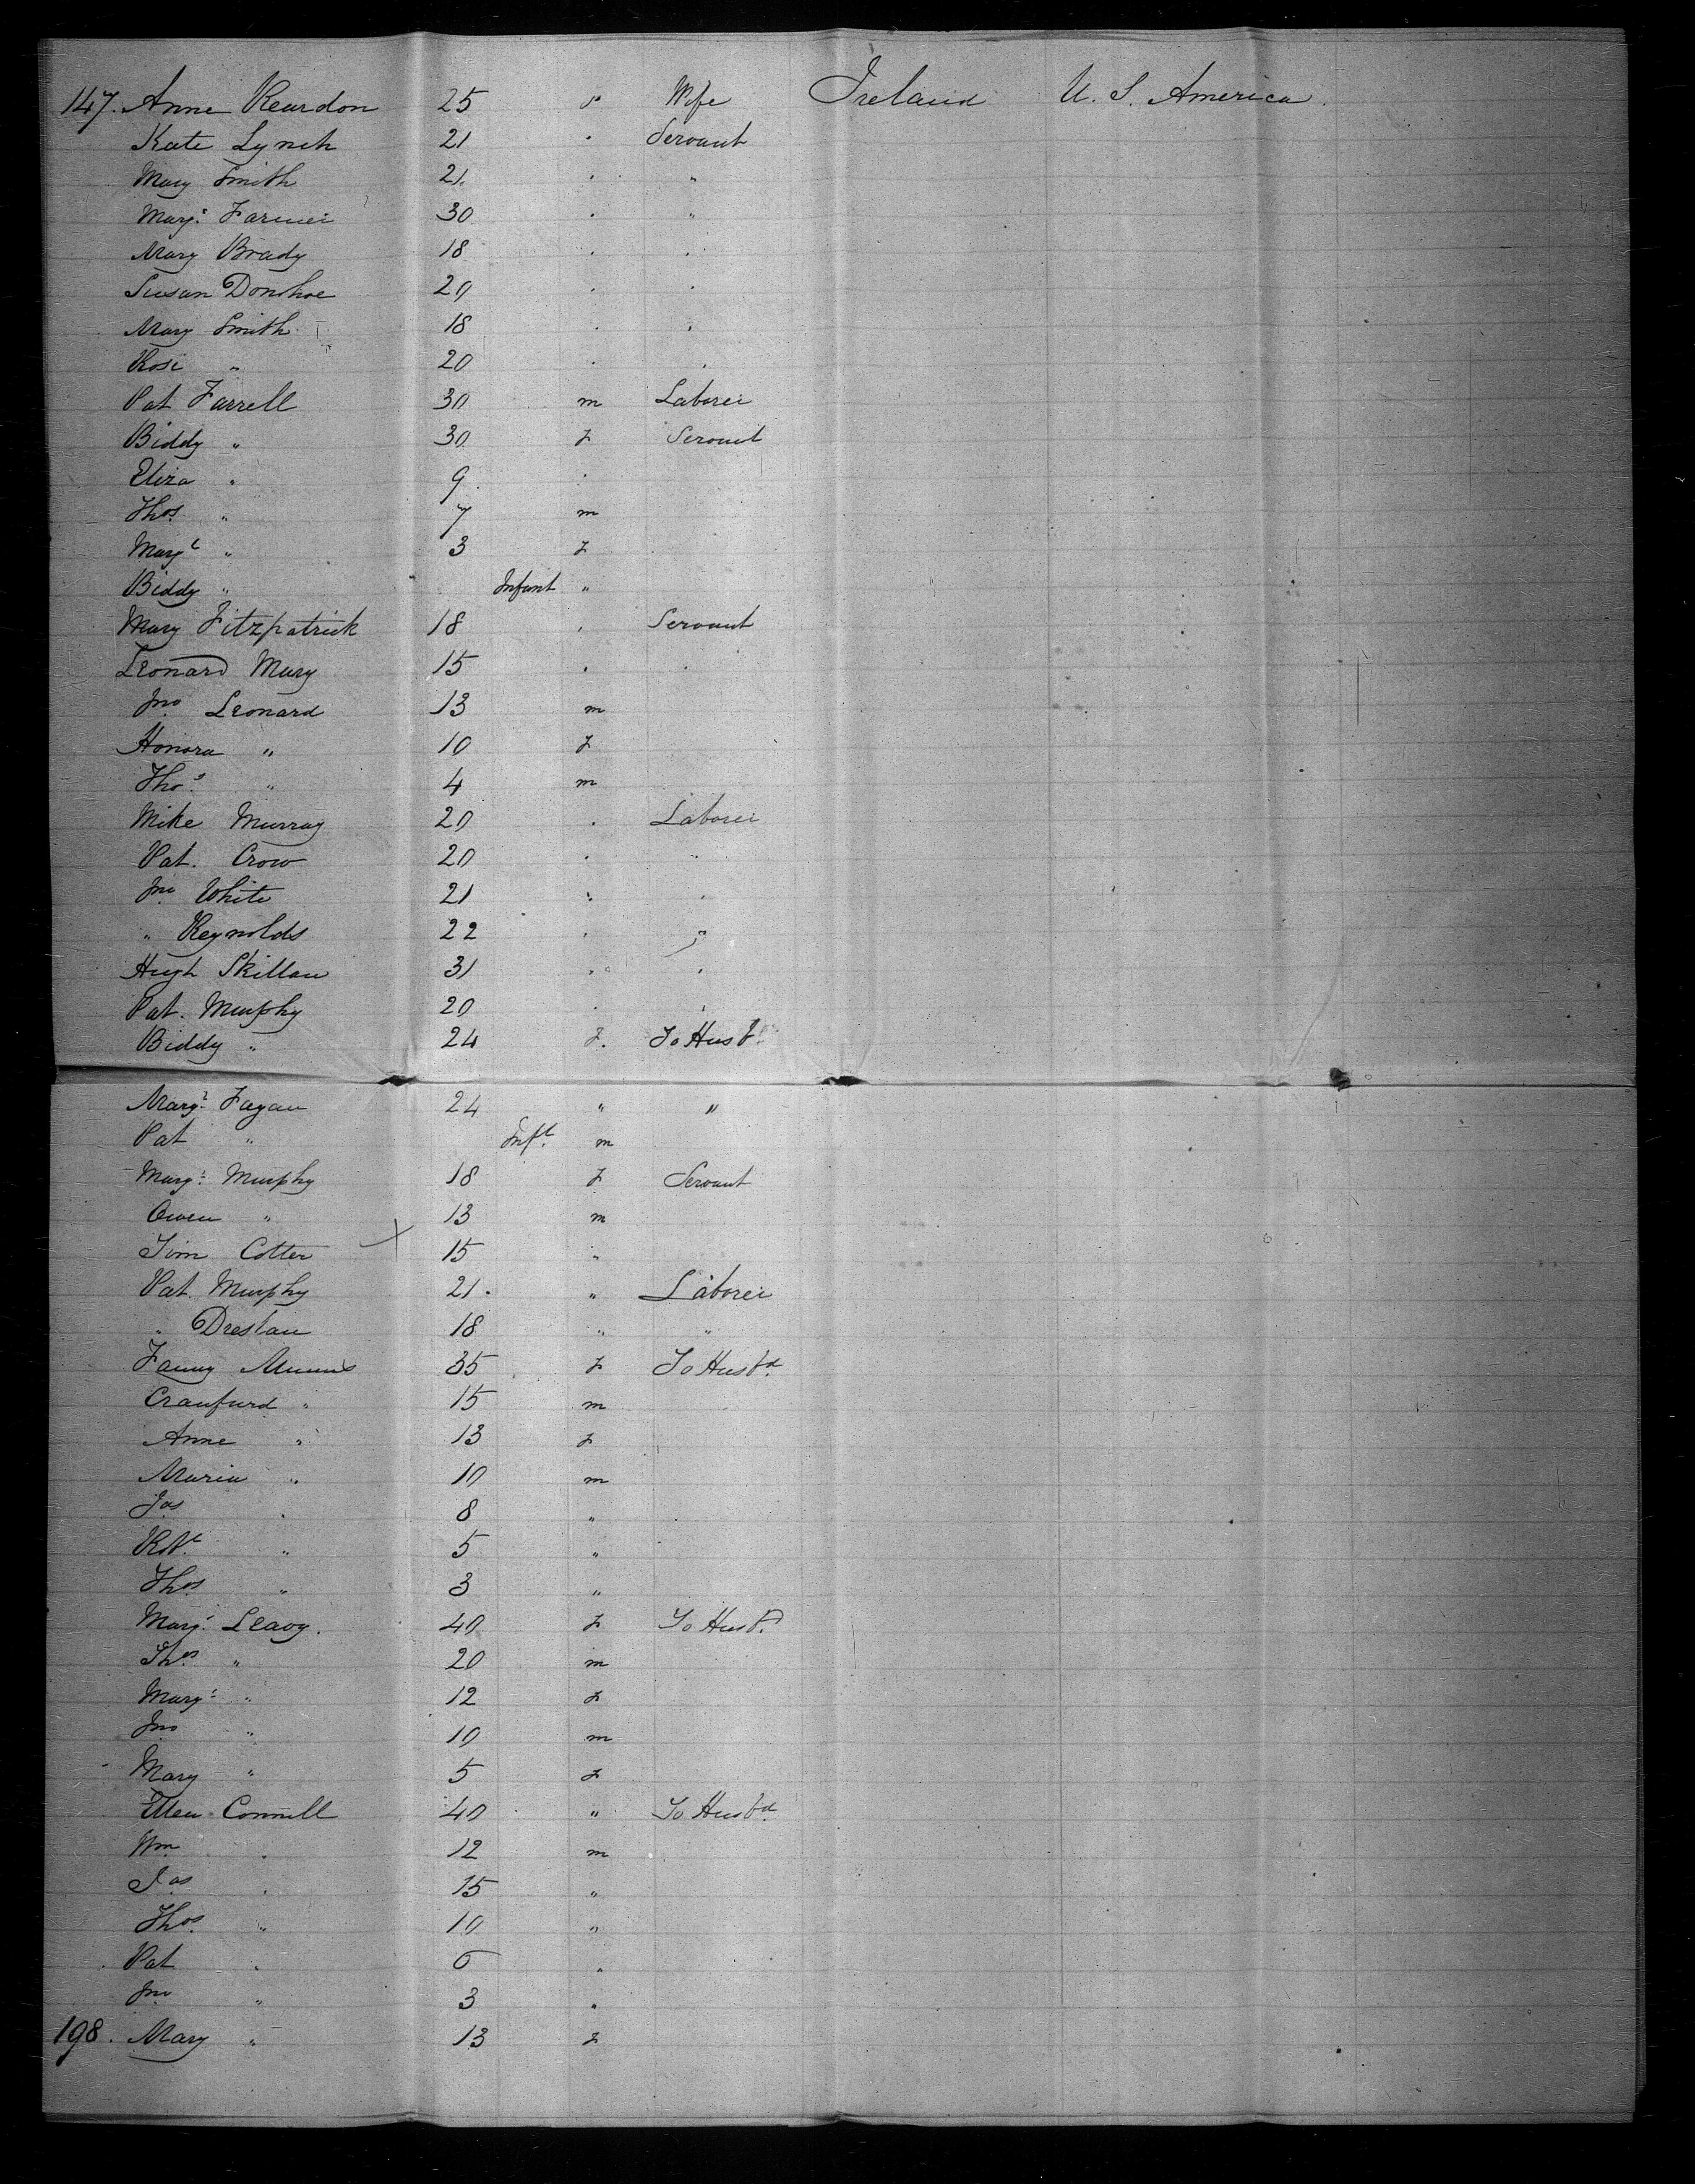 147. Anne Reardon 25 " Wife Ireland U. S. America.
Kate Lynch 21 " Servant
Mary Smith 21. " "
Margt. Farmer 30 " "
Mary Brady 18 " "
Susan Donohoe 20 " "
Mary Smith 18 " "
Rose " 20 " "
Pat Farrell 30 m Laborer
Biddy " 30 f Servant
Eliza " 9 "
Thos. " 7 m
Margt " 3 f
Biddy " Infant "
Mary Fitzpatrick 18 " Servant
Leonard Mary 15 " "
Jno. Leonard 13 m
Honora " 10 f
Thos. " 4 m
Mike Murray 20 " Laborer
Pat. Crow 20 " "
Jno. White 21 " "
" Reynolds 22 " "
Hugh Skillan 31 " "
Pat. Murphy 20 " "
Biddy " 24 f. To Husbd.
Margt. Fagan 24 " "
Pat " Inft. m
Margt. Murphy 18 f Servant
Owen " 13 m
Tim Cotter 15 "
Pat. Murphy 21. " Laborer
" 18 " "
Fanny 35 f To Husbd.
Craufurd " 15 m
Anne " 13 f
Maria " 10 m
Jas " 8 "
Robt. " 5 "
Thos. " 3 "
Margt. Leavy. 40 f To Husbd.
Thos. " 20 m
Margt. " 12 f
Jno " 10 m
Mary " 5 f
Ellen Connell 40 " To Husbd.
Wm. " 12 m
Jas " 15 "
Thos. " 10 "
Pat " "
Jno " 3 "
198. Mary " 13 f